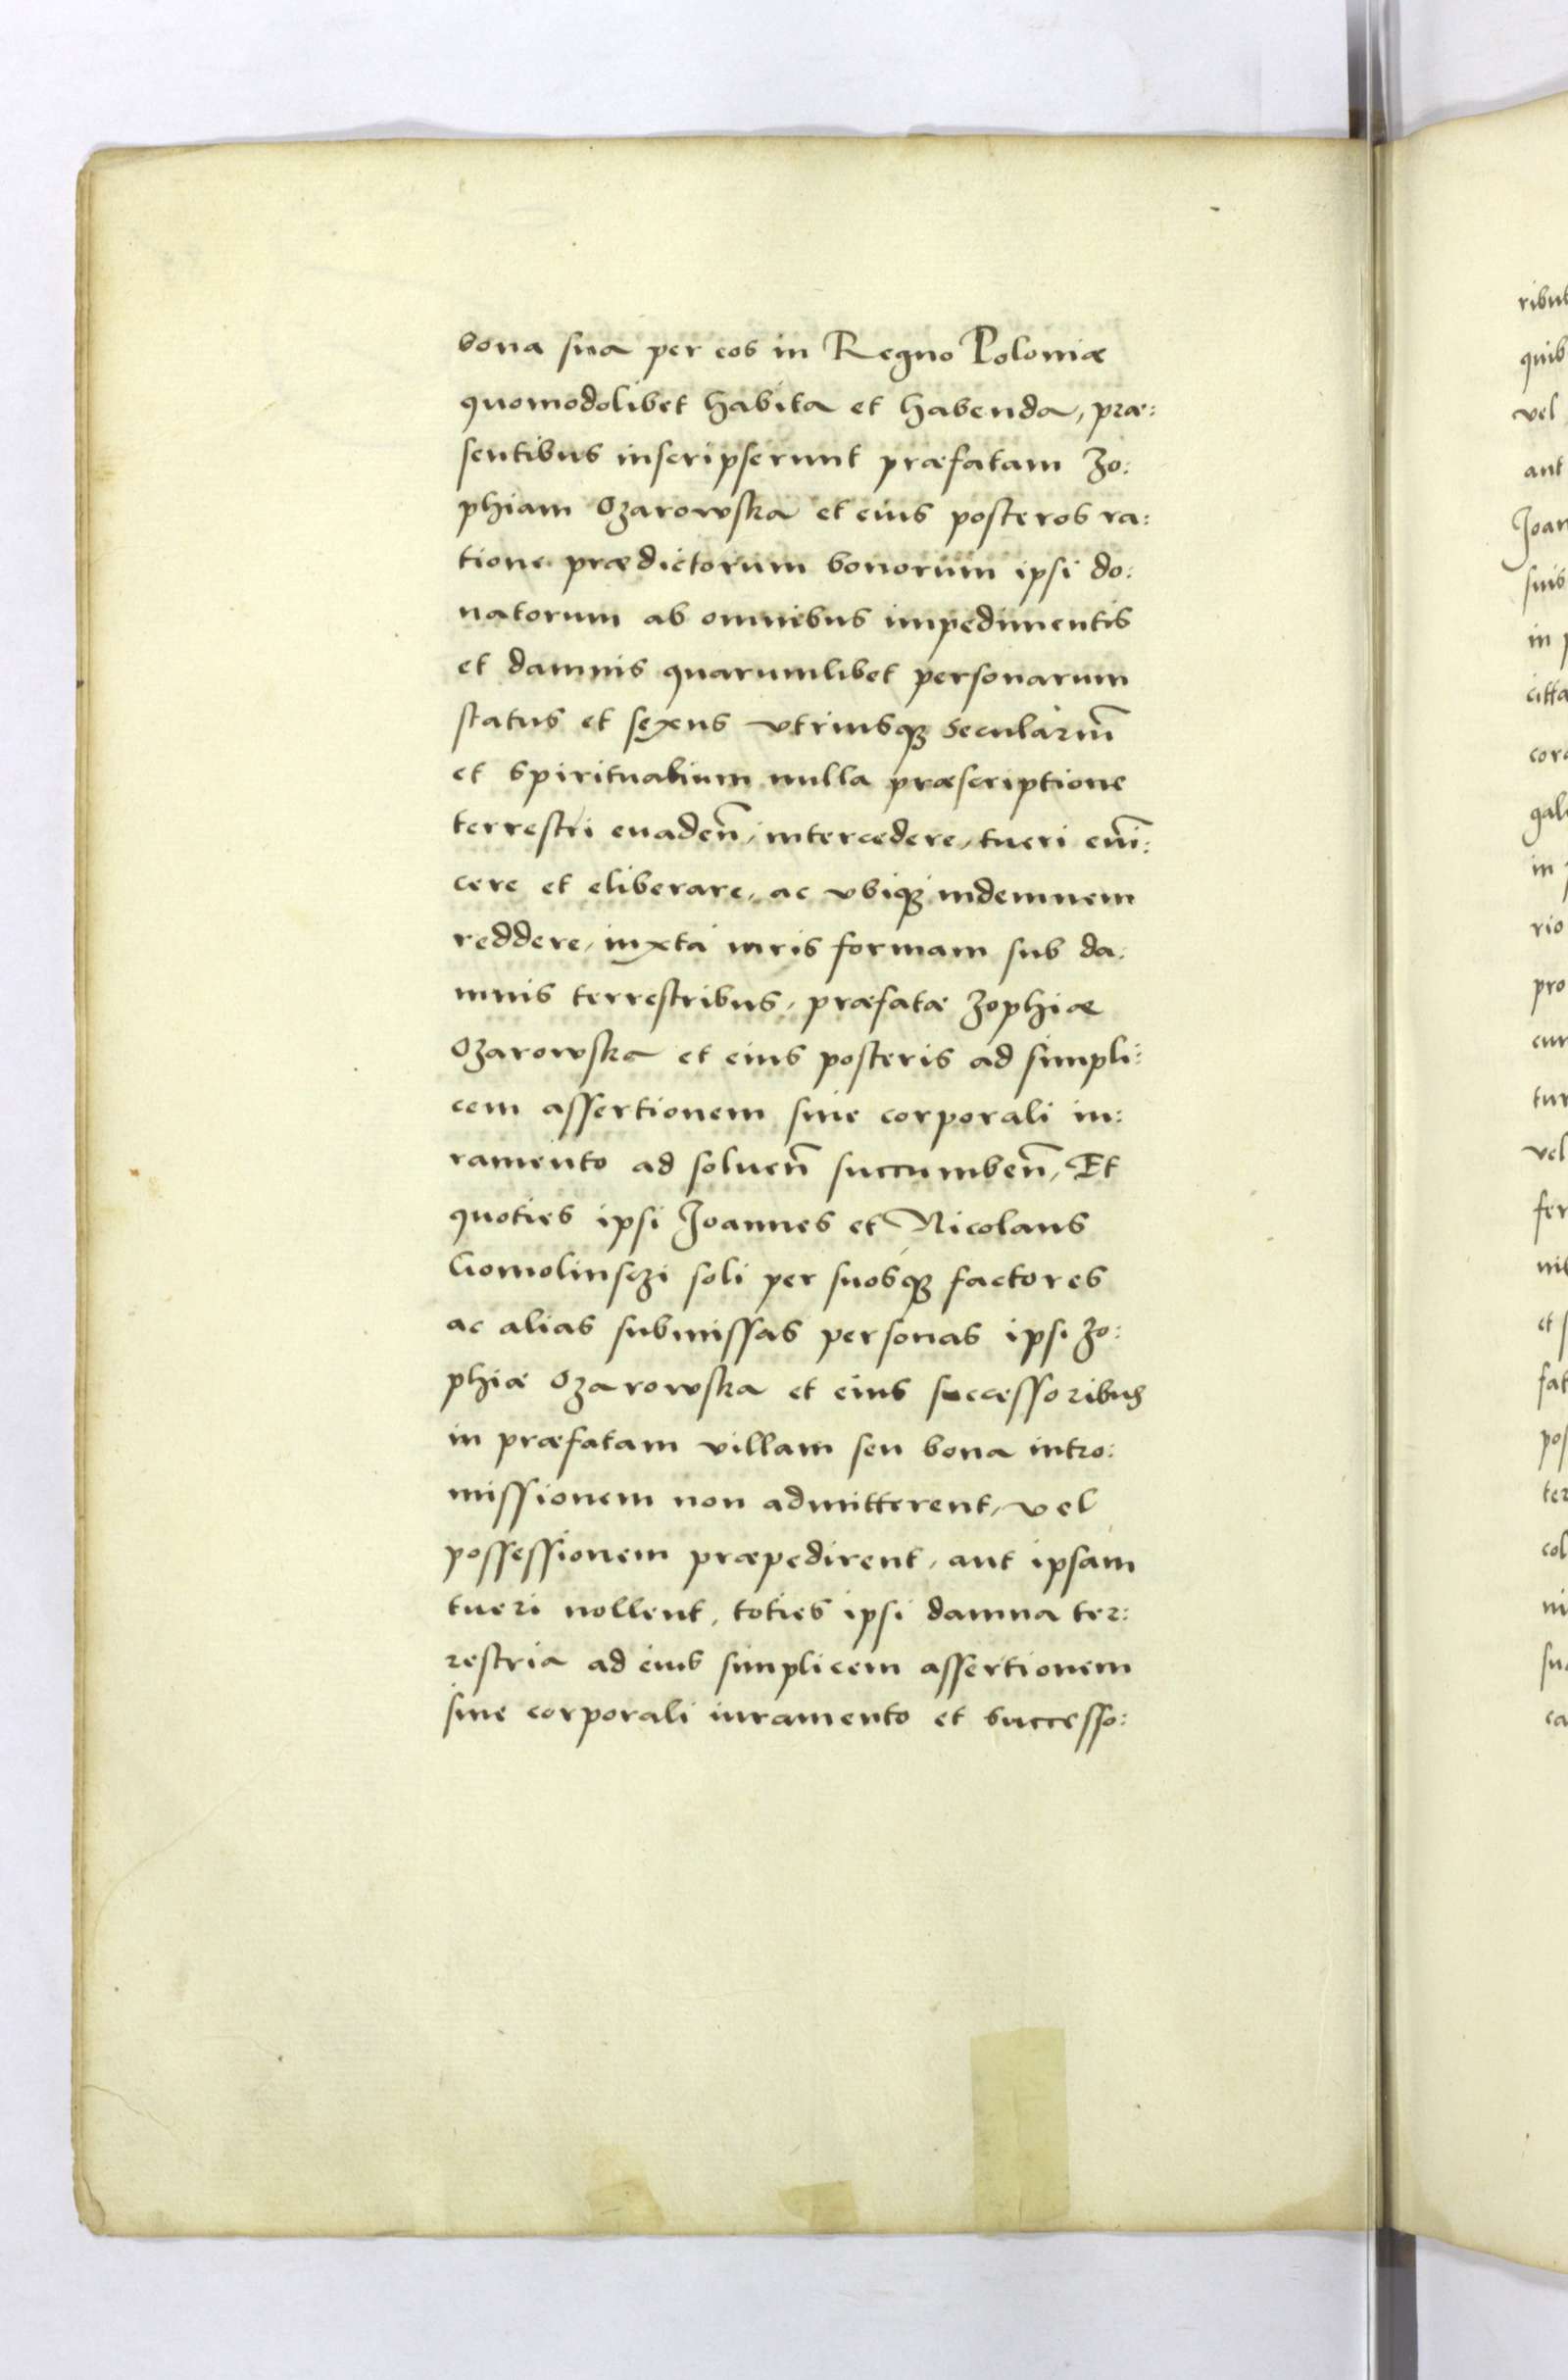 bona sua per eos in Regno Poloniæ
quomodolibet habita et habenda, præ:
sentibus inscripserunt præfatam Zo:
phiam Ozarowska et eius posteros ra:
tione prædictorum bonorum ipsi do:
natorum ab omnibus impedimentis
et damnis quarumlibet personarum
status et sexus vtriusqꝫ seculariũ
et spiritualium nulla præscriptione
terrestri euadeñ, intercedere, tueri euĩ:
cere et eliberare, ac vbiqꝫ indemnem
reddere, iuxta iuris formam sub da:
mnis terrestribus, præfatæ Zophiæ
Ozarowska et eius posteris ad simpli:
cem assertionem sine corporali iu:
ramento ad solueñ succumbeñ, Et
quoties ipsi Joannes et Nicolaus
Gomolinsczi soli per suosqꝫ factores
ac alias submissas personas ipsi Zo:
phiæ Ozarowska et eius successoribus
in præfatam villam seu bona intro:
missionem non admitterent, vel
possessionem præpedirent, aut ipsam
tueri nollent, toties ipsi damna ter:
restria ad eius simplicem assertionem
sine corporali iuramento et successo:
ribus
quib
vel
aut
Joan
suis
in
citta
cor
gal
in
rio
pro
cur
tur
vel
fer
et
fat
pos
ter
col
ca